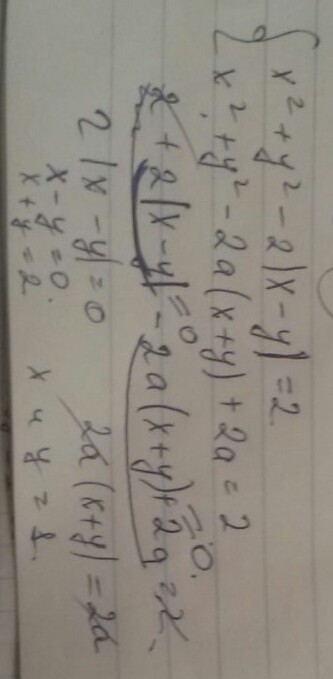 x² + y² - 2|x - y| = 2
x² + y² - 2a(x + y) + 2a = 2
2 + 2|x - y| - 2a(x + y) + 2a = 2
= 0 = 0.
2|x - y| = 0 2a(x + y) = 2a
x - y = 0
x + y = 2.